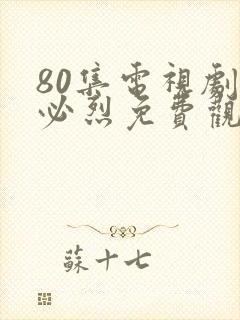 80集電視劇
必烈免費觀
蘇十七